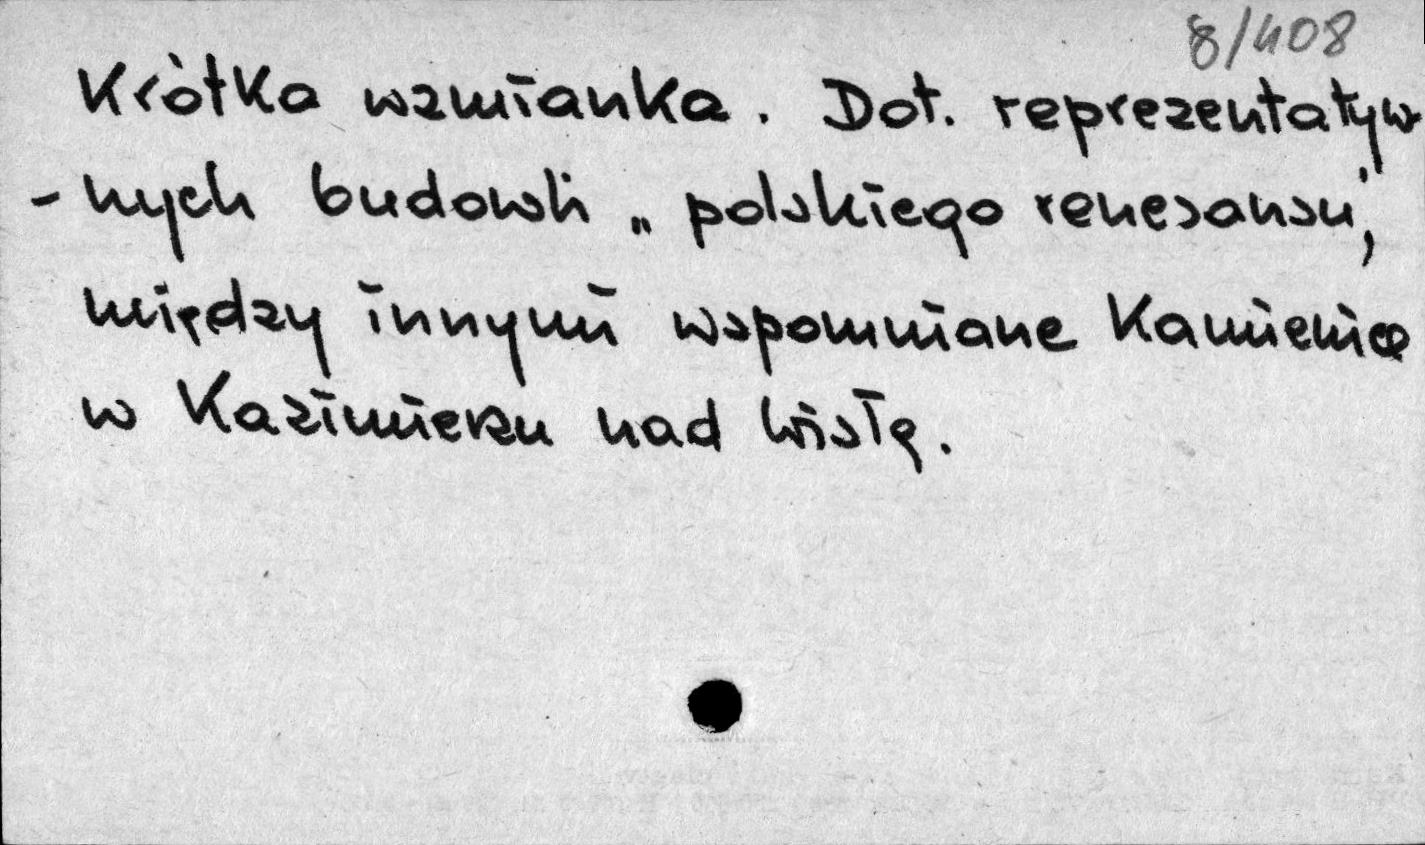 8/408
Krótka wzmianka. Dot. reprezentatyw
-nych budowli „polskiego renesansu",
między innymi wspomniane Kamienice
w Kazimierzu nad Wisłą.